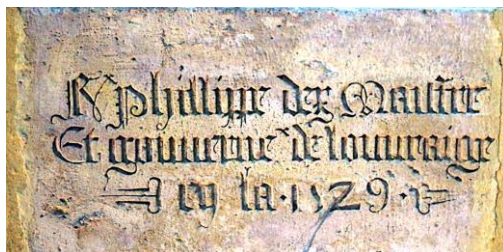 phillippe der Maistre
Et gouverne de louvraige
en la · 1529 ·